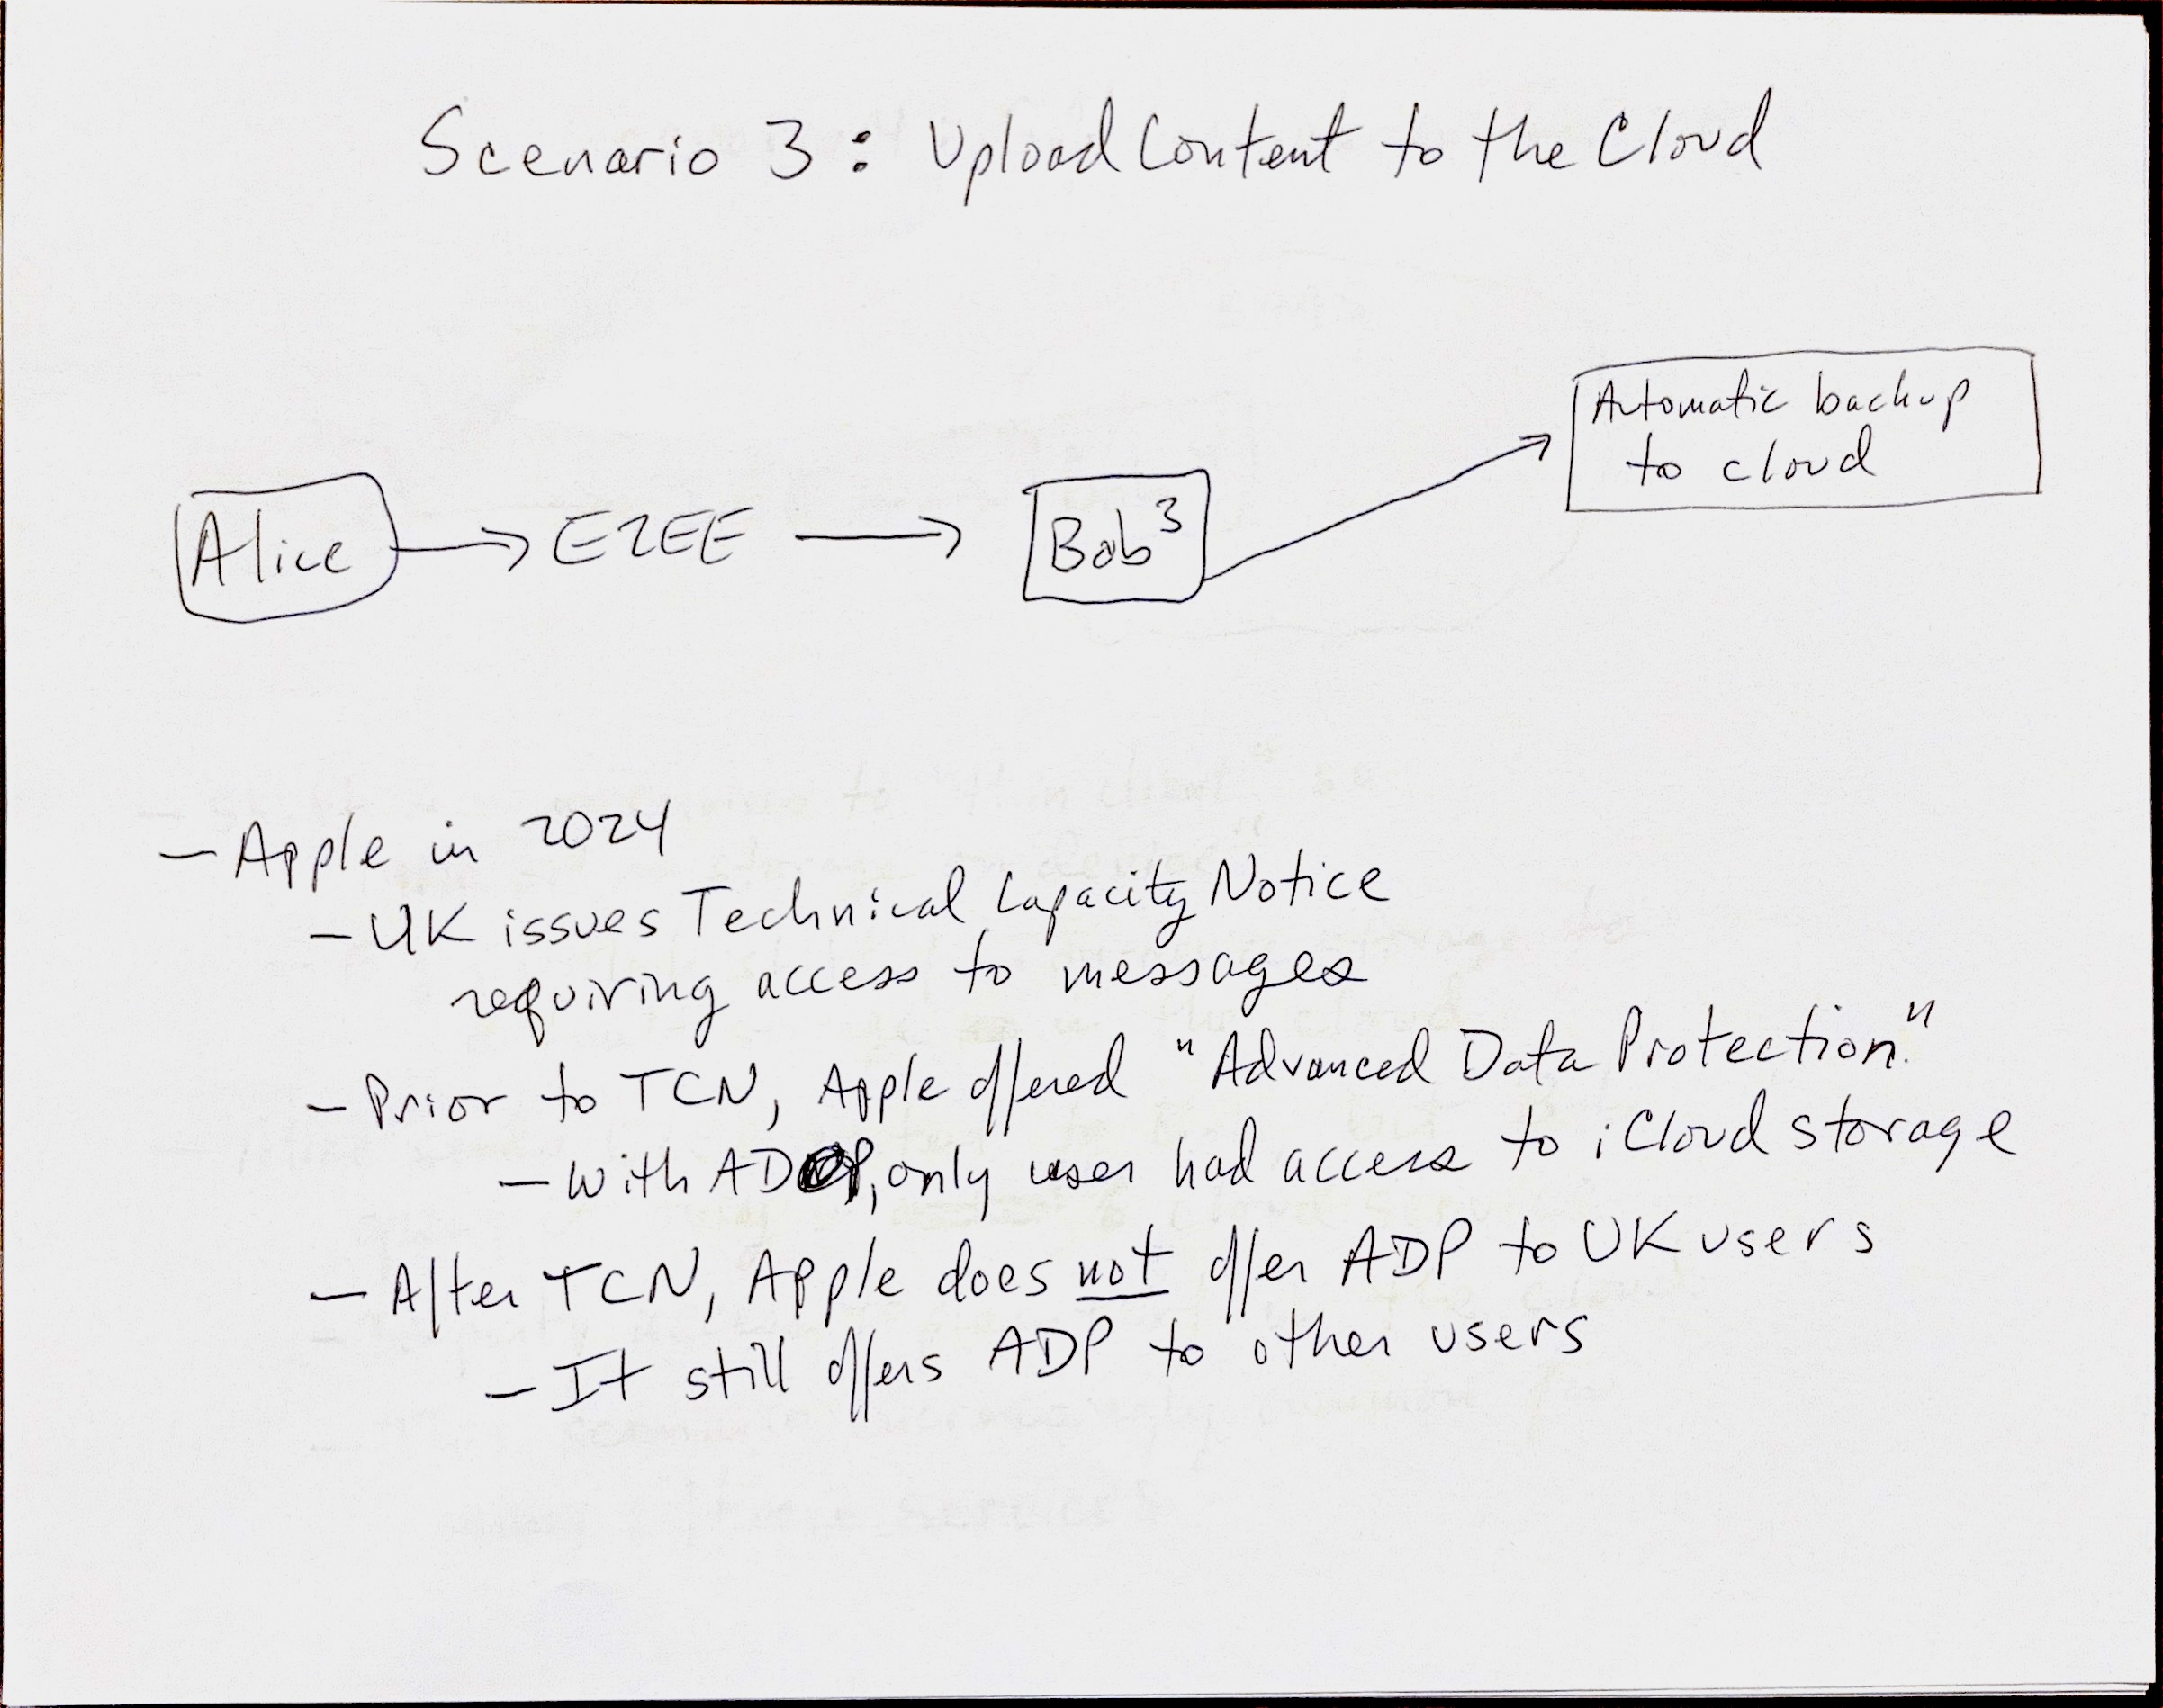 Scenario 3: Upload Content to the Cloud
Automatic backup
to cloud
Alice
E2EE
Bob³
- Apple in 2024
- UK issues Technical Capacity Notice
requiring access to messages
- Prior to TCN, Apple offered "Advanced Data Protection."
- With ADP, only user had access to iCloud storage
- After TCN, Apple does not offer ADP to UK users
- It still offers ADP to other users